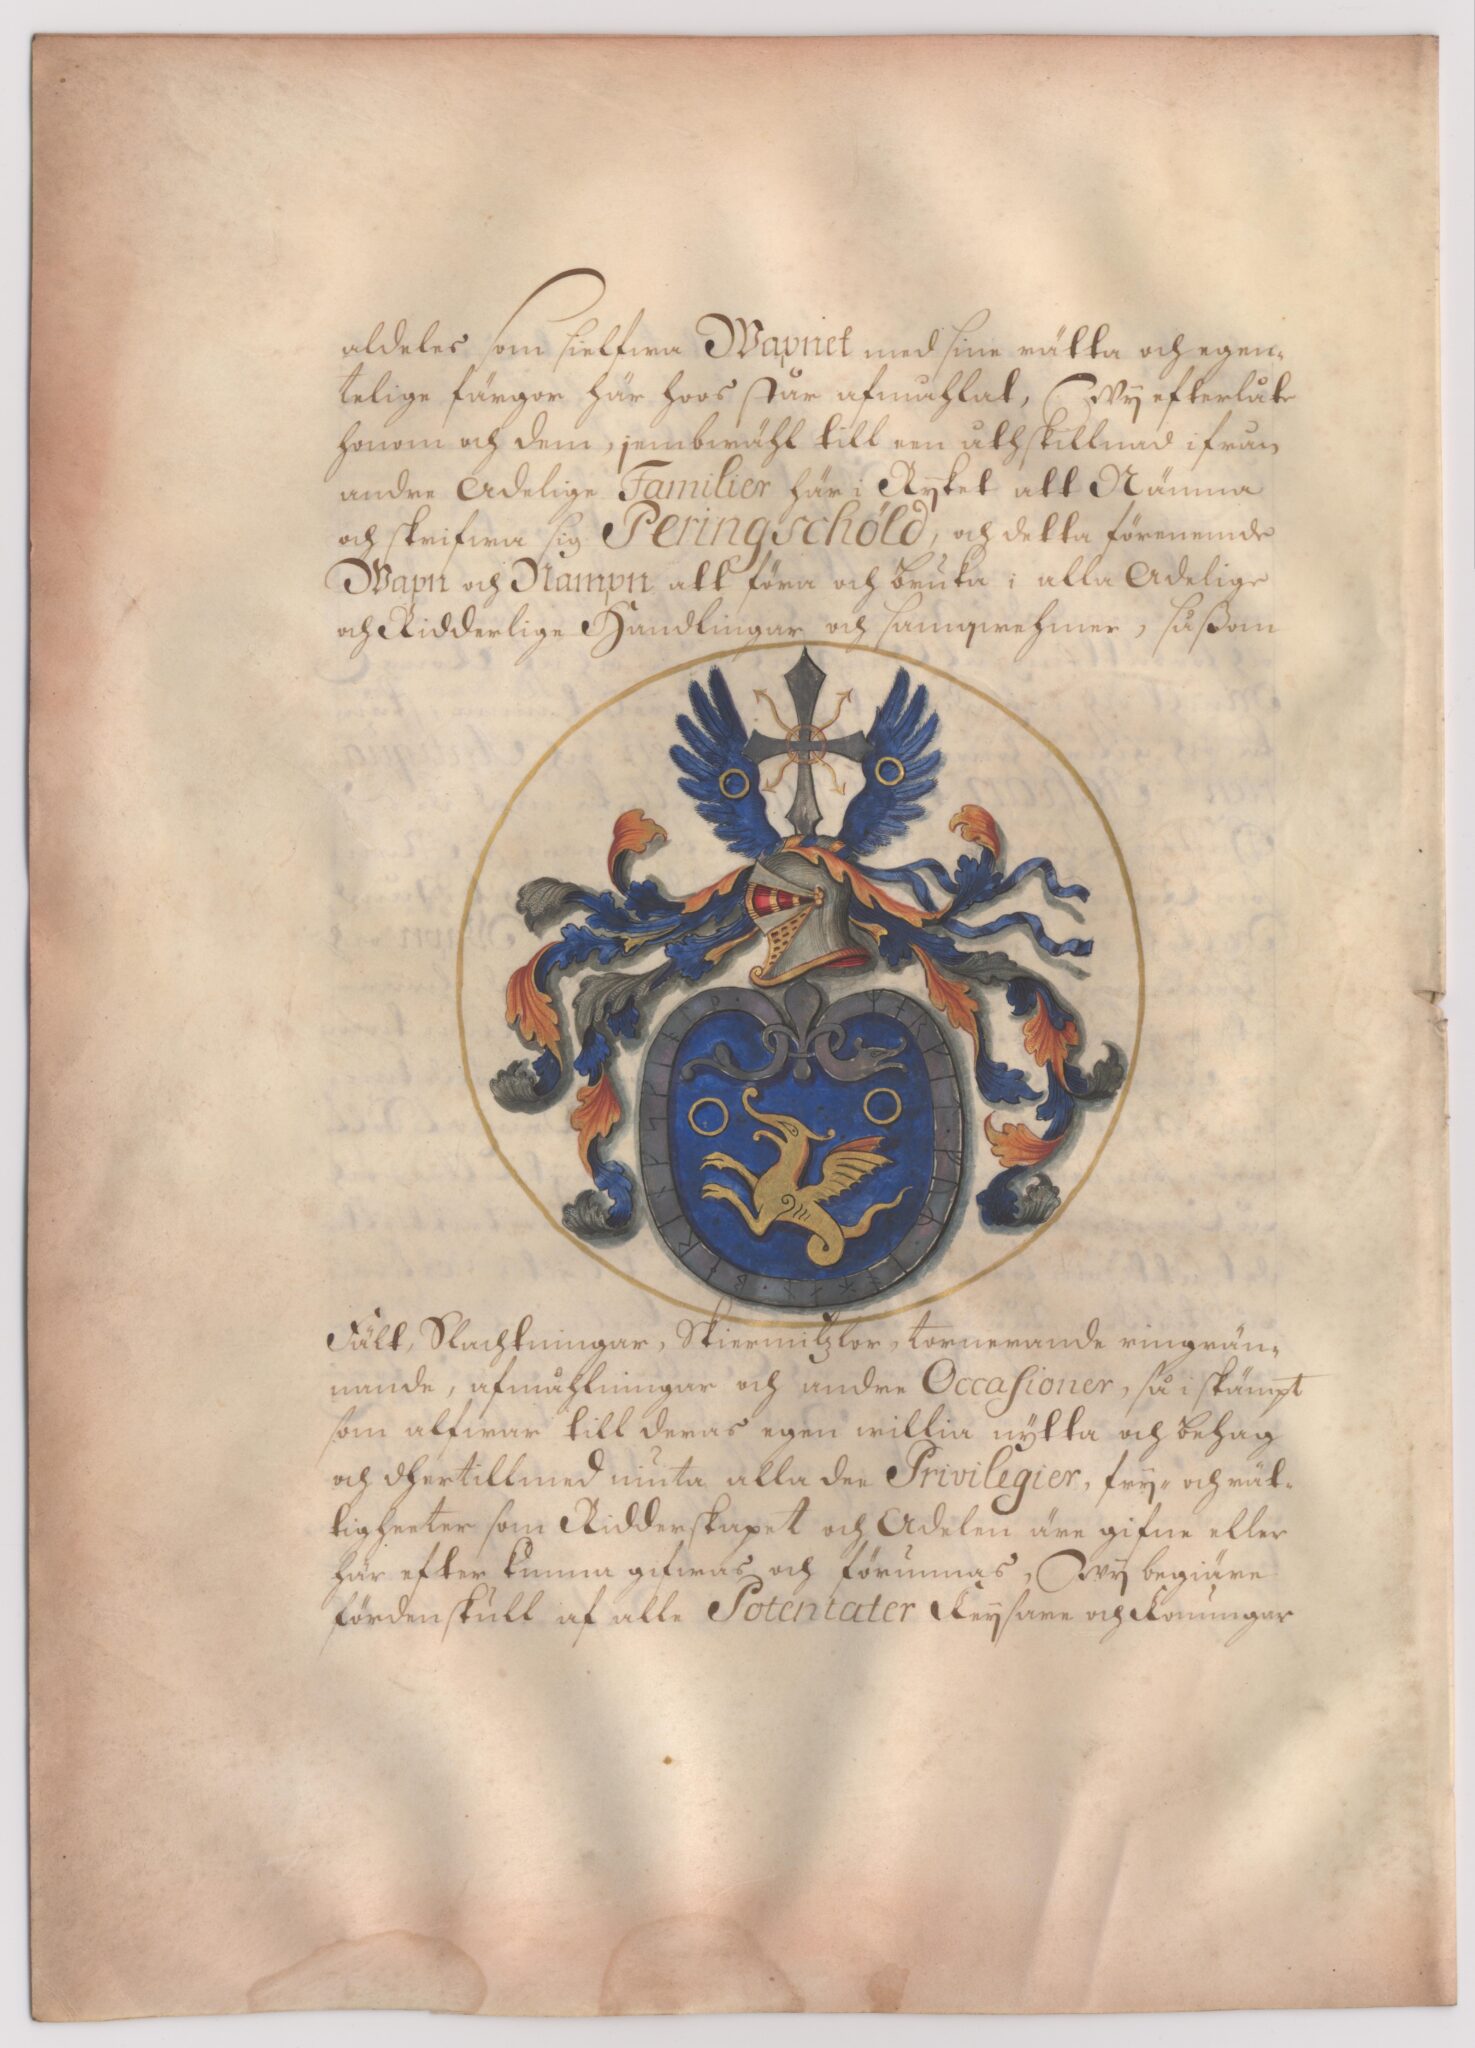 aldeles som sielfwa Wapnet med sine rätta och egen-
telige färgor här hoos står afmåhlat, Wy efterlåte
honom och dem, jembwähl till een uthskillnad ifrån
andre Adelige Familier här i Ryket att Nämna
och skrifwa sig Peringschöld, och detta förenemde
Wapn och Nampn att föra och bruka i alla Adelige
och Ridderlige Handlingar och samqwehmer, såßom
Fält, Slachtningar, Skiermitzlor, tornerande ringrän-
nande, afmåhlningar och andre Occasioner, så i skämpt
som alfwar till deras egen willia nytta och behag
och dhertillmed niuta alla dee Privilegier, fry- och rät-
tigheeter som Ridderskapet och Adelen äre gifne eller
här efter kunna gifwas och förunnas, Wy begiäre
fördenskull af alle Potentater Keysare och Konungar